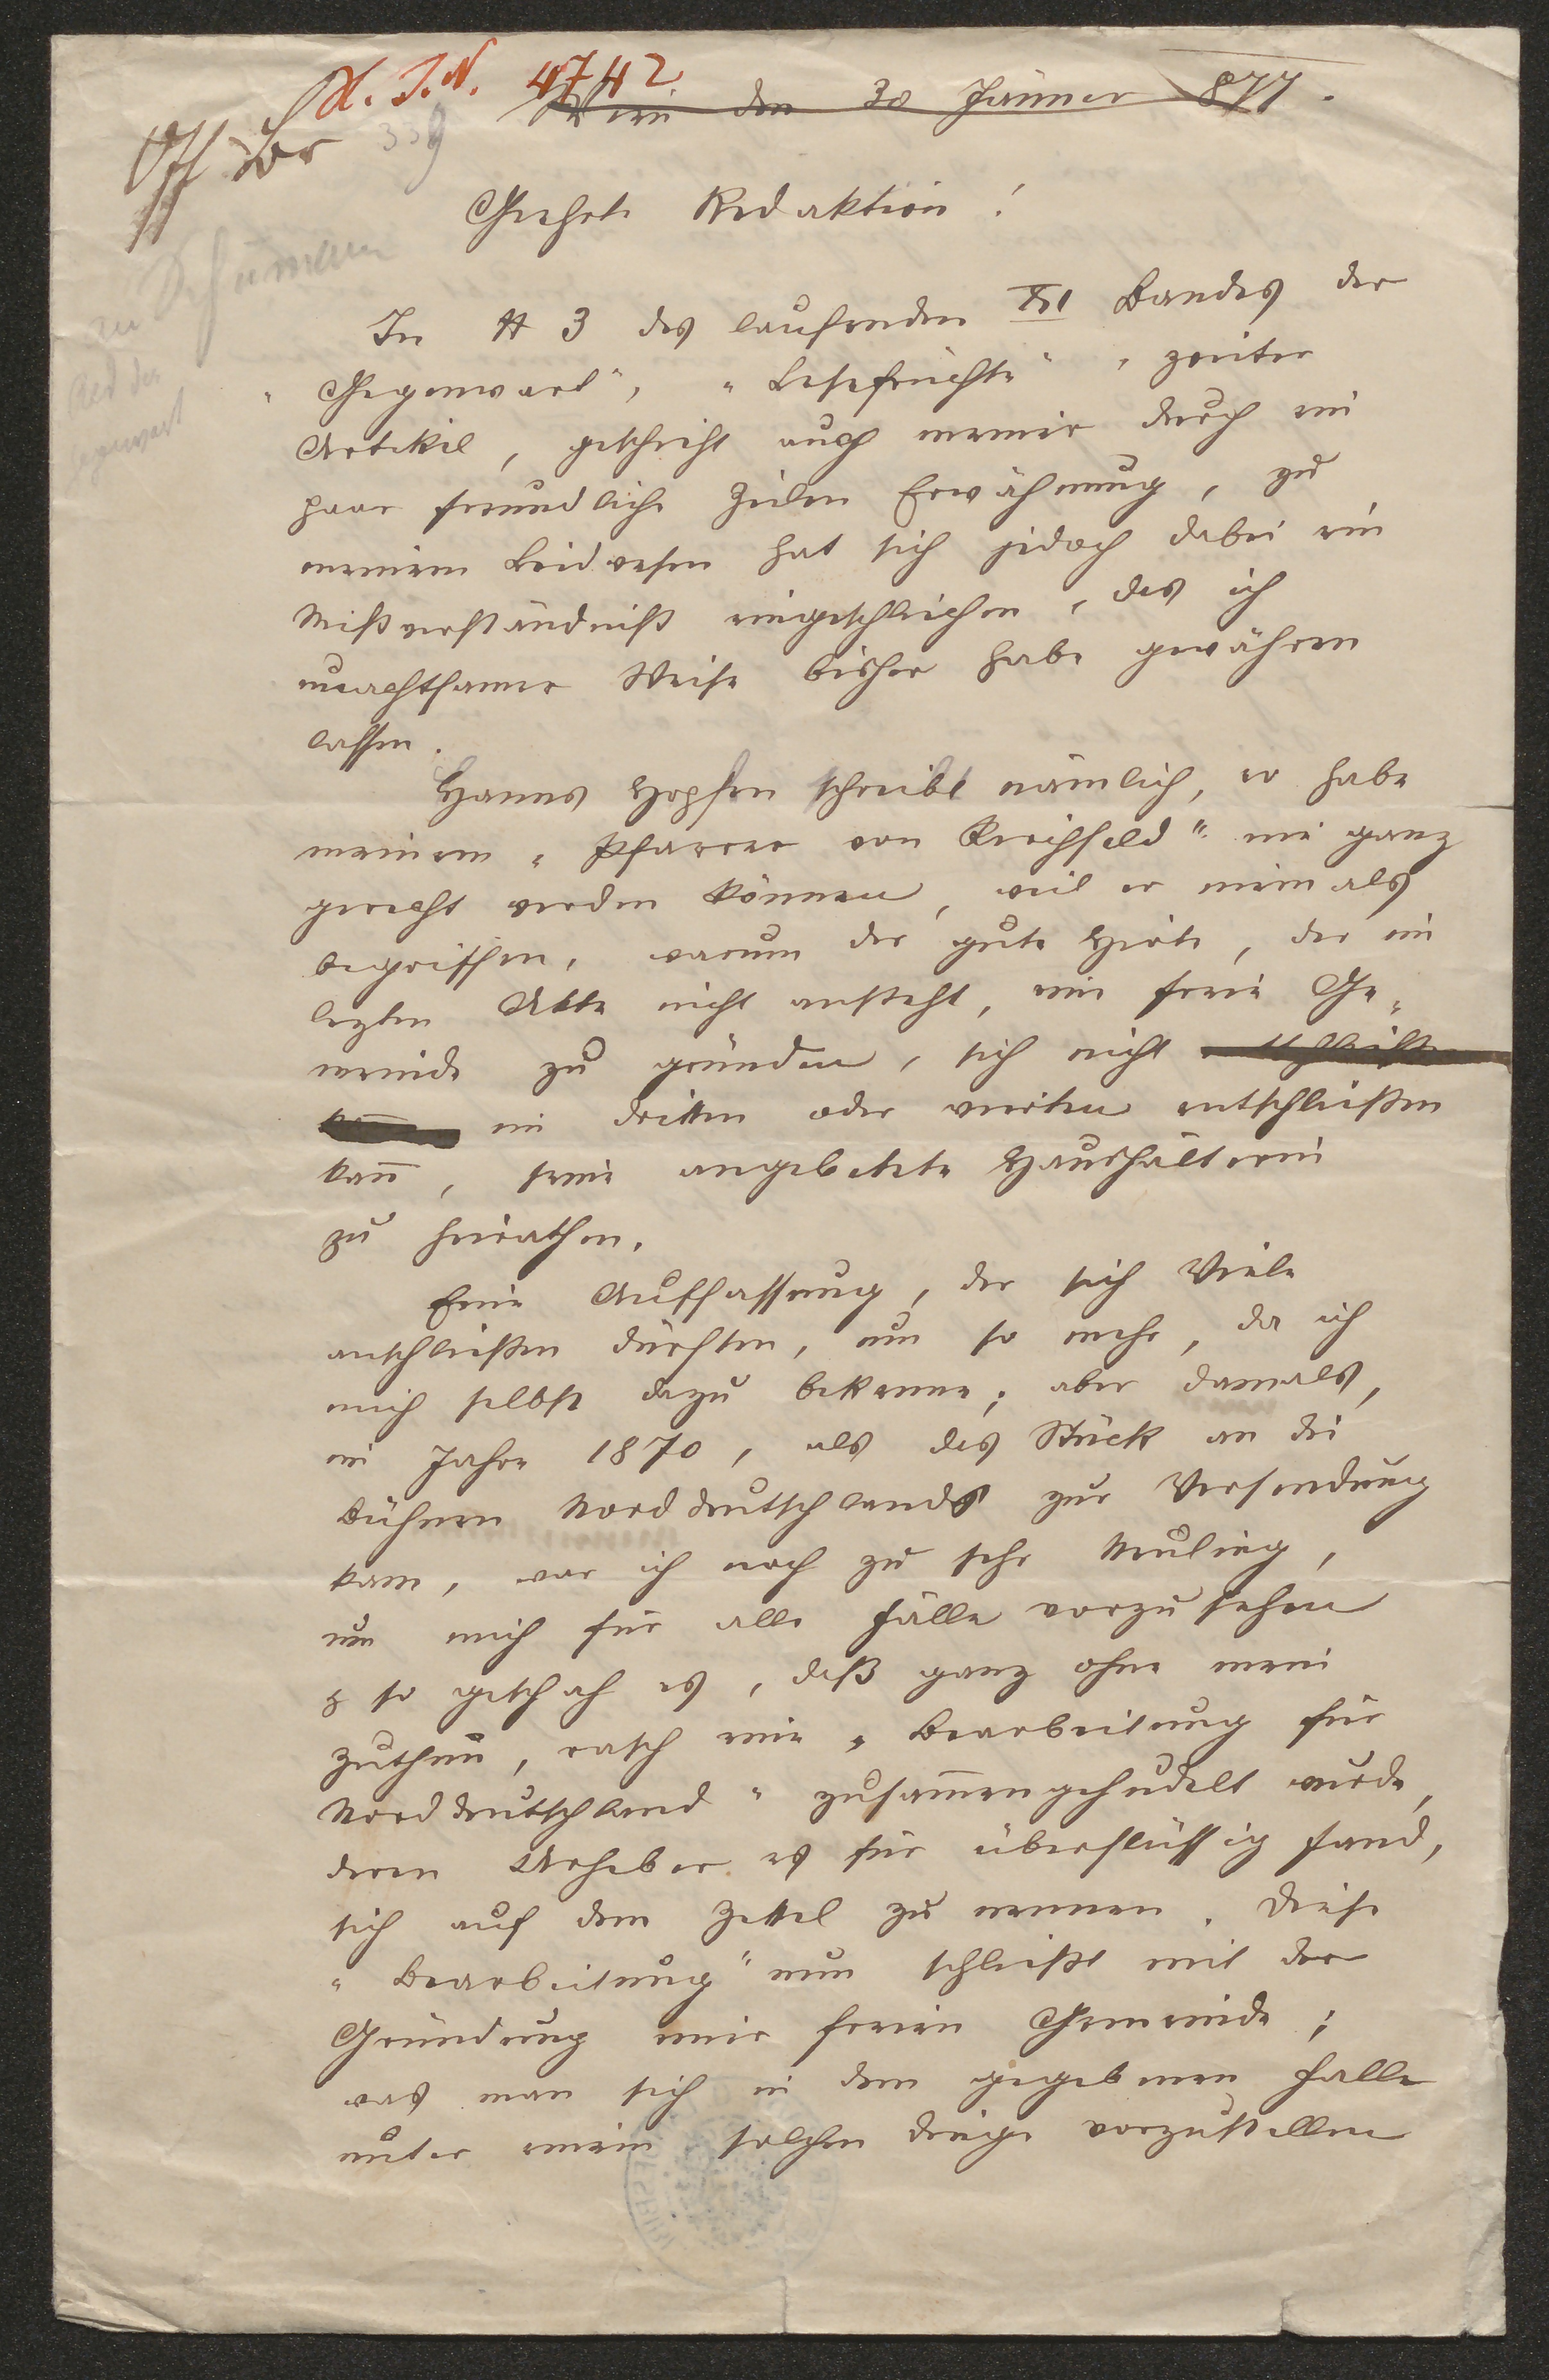 H. I. N. 4742
339
Wien den 30 Jänner 877.
Geehrte Redaktion!
In # 3 des laufenden XI Bandes der
„Gegenwart", „Lesefrüchte", zweiter
Artikel, geschieht auch meiner durch ein
paar freundliche Zeilen Erwähnung, zu
meinem Leidwesen hat sich jedoch dabei ein
Mißverständniß eingeschlichen, das ich
unachtsamer Weise bisher habe gewähren
lassen.
Hanns Hopfen schreibt nämlich, er habe
meinem „Pfarrer von Kirchfeld" nie ganz
gerecht werden können, weil er niemals
begriffen, warum der gute Hirte, der im
lezten Akte nicht ansteht, eine freie Ge-
meinde zu gründen, sich nicht
im dritten oder vierten entschließen
kann, seine angebetete Haushälterin
zu heirathen.
Eine Auffassung, der sich Viele
anschließen dürften, um so mehr, da ich
mich selbst dazu bekenne; aber damals,
im Jahre 1870, als das Stück an die
Bühnen Norddeutschlands zur Versendung
kam, war ich noch zu sehr Neuling,
um mich für alle Fälle vorzusehen
& so geschah es, daß ganz ohne mein
Zuthun, rasch eine „Bearbeitung für
Norddeutschland" zusammengehudelt wurde,
deren Urheber es für überflüssig fand,
sich auf dem Zettel zu nennen. Diese
„Bearbeitung" nun schließt mit der
Gründung einer freien Gemeinde;
was man sich in dem gegebenen Falle
unter einem solchen Dinge vorzustellen
Red der
Gegenwart